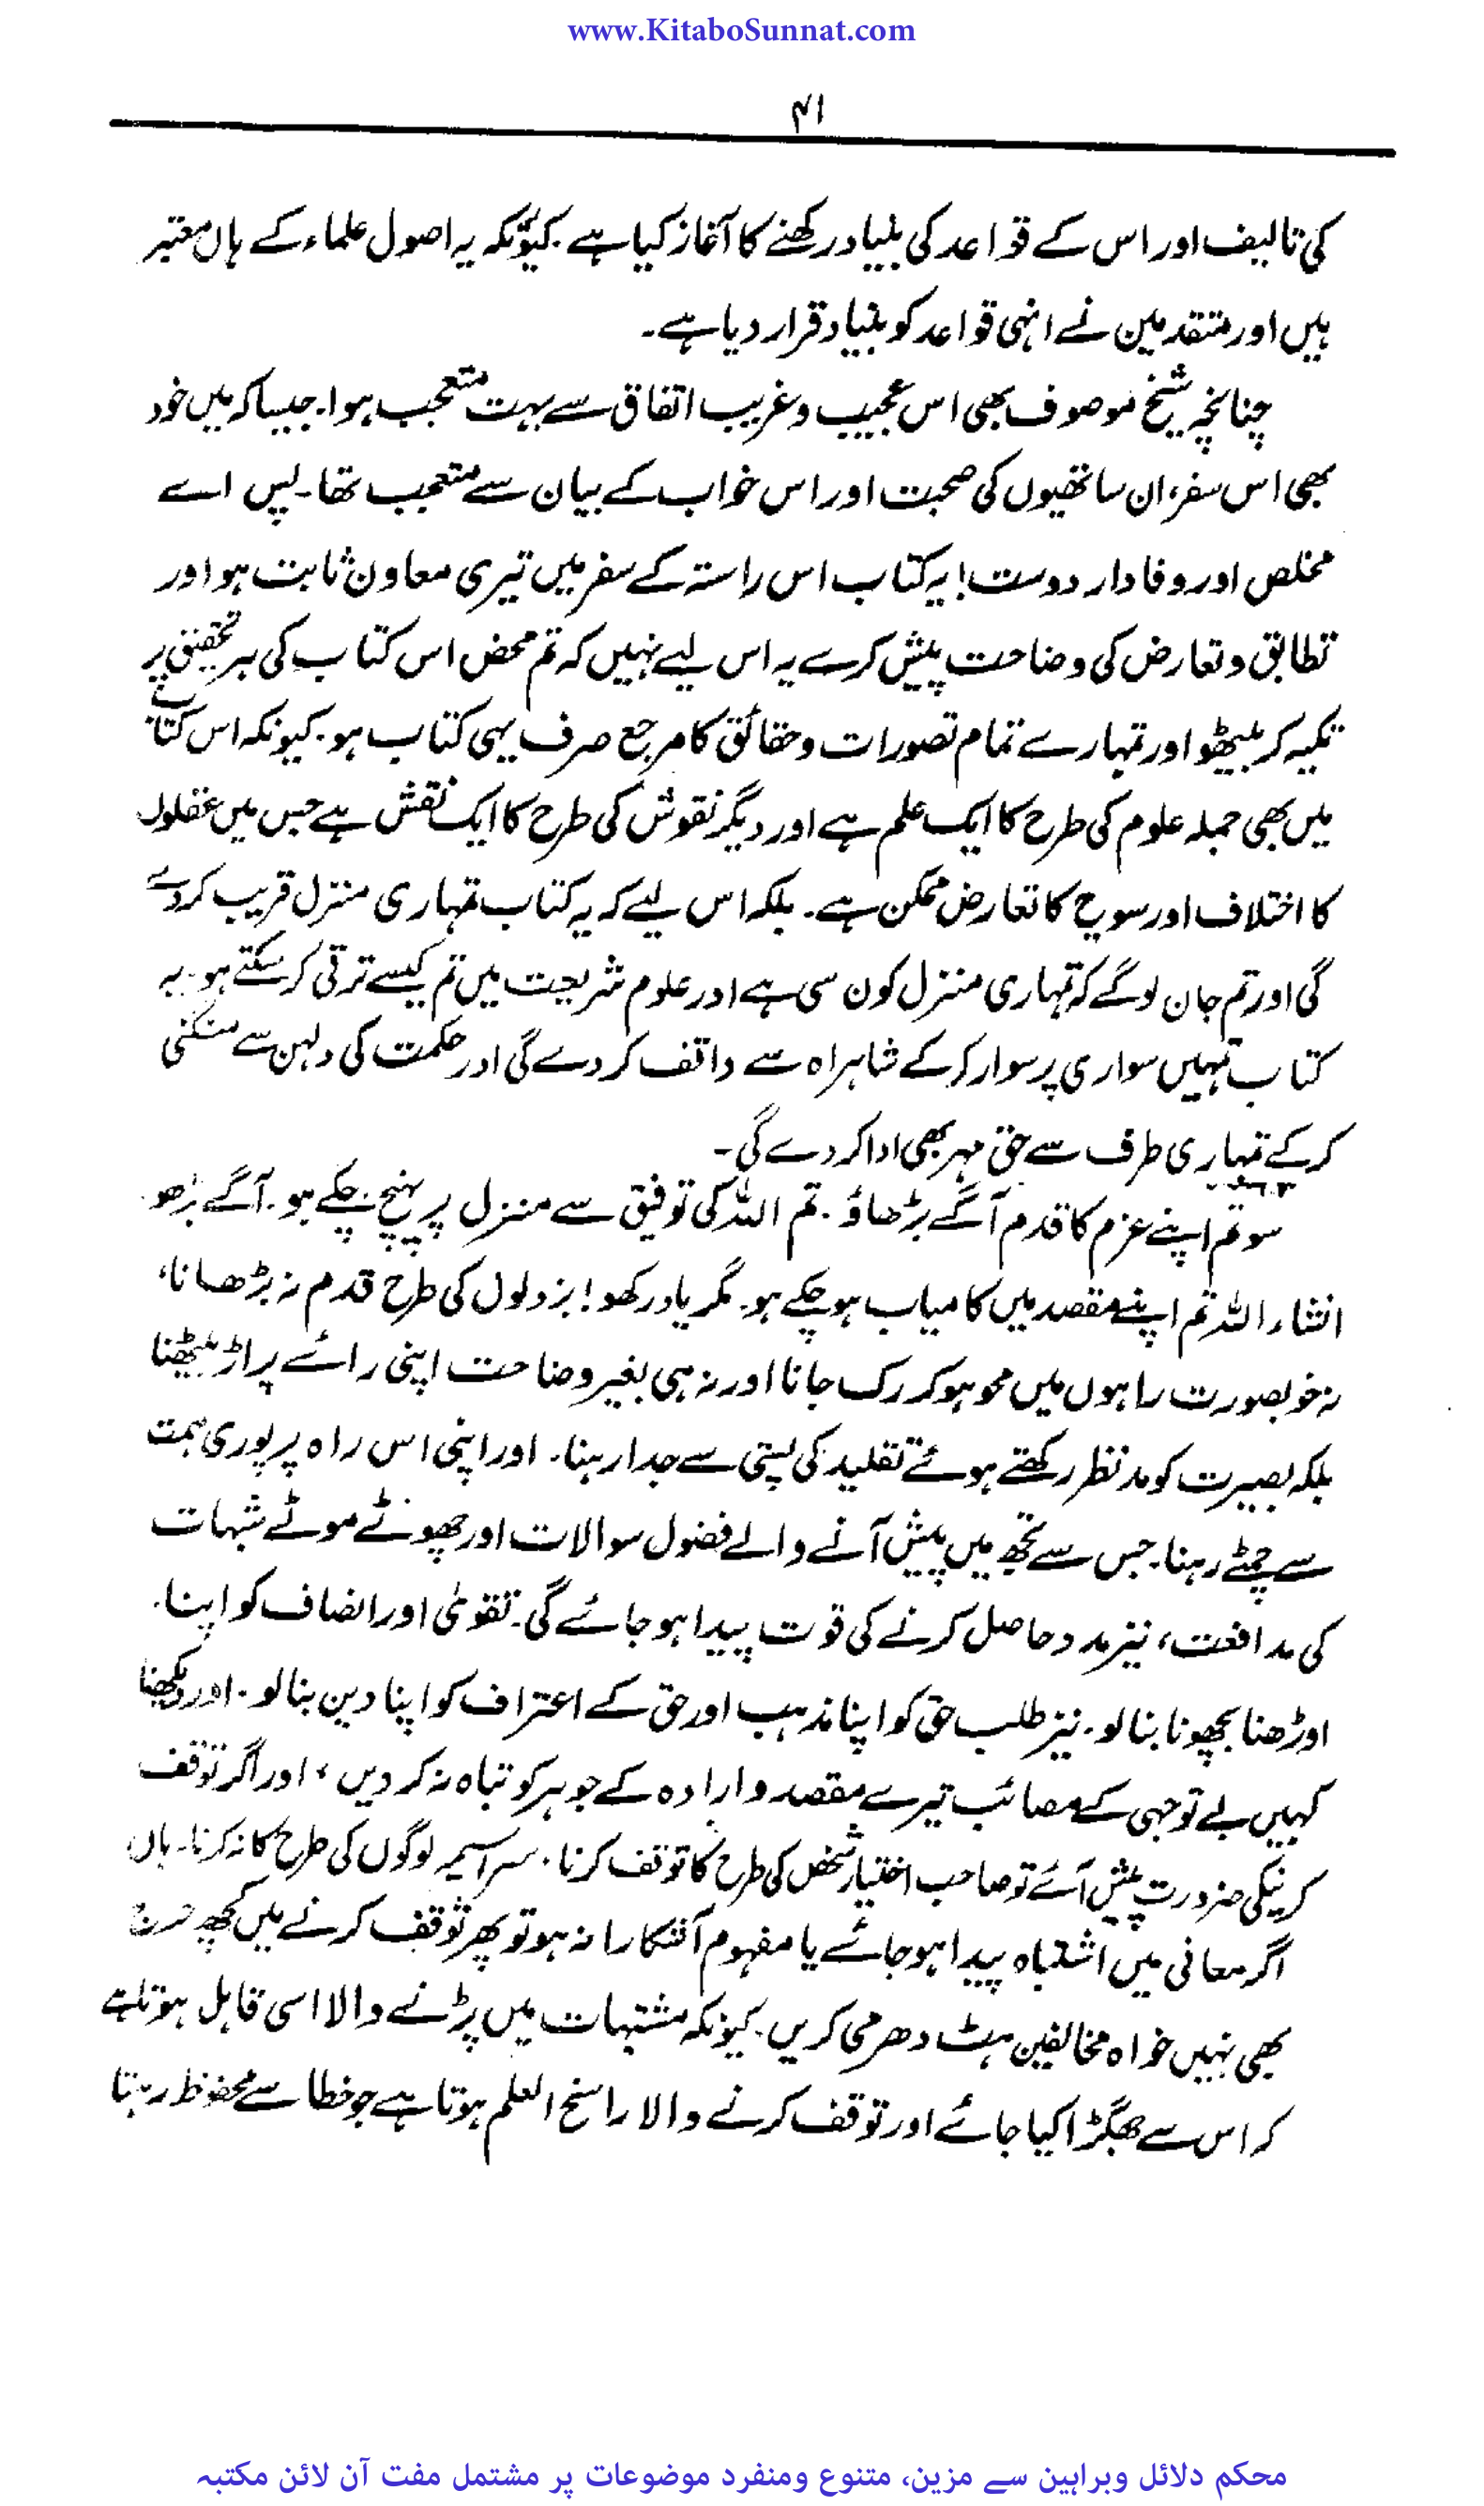 www.KitaboSunnat.com
۴۱
کی تالیف اور اس کے قواعد کی بنیاد رکھنے کا آغاز کیا ہے۔ کیونکہ یہ اصول علماء کے ہاں معتبر
ہیں اور متقدمین نے انہی قواعد کو بنیاد قرار دیا ہے۔
چنانچہ شیخ موصوف بھی اس عجیب و غریب اتفاق سے بہت متعجب ہوا۔ جیسا کہ میں خود
بھی اس سفر، ان ساتھیوں کی صحبت اور اس خواب کے بیان سے متعجب تھا۔ پس اے
مخلص اور وفادار دوست! یہ کتاب اس راستہ کے سفر میں تیری معاون ثابت ہو اور
تطابق و تعارض کی وضاحت پیش کرے یہ اس لیے نہیں کہ تم محض اس کتاب کی ہر تحقیق پر
تکیہ کر بیٹھو اور تمہارے تمام تصورات و حقائق کا مرجع صرف یہی کتاب ہو۔ کیونکہ اس کتاب
میں بھی جملہ علوم کی طرح کا ایک علم ہے اور دیگر نقوش کی طرح کا ایک نقش ہے جس میں عقلوں
کا اختلاف اور سوچ کا تعارض ممکن ہے۔ بلکہ اس لیے کہ یہ کتاب تمہاری منزل قریب کر دے
گی اور تم جان لو گے کہ تمہاری منزل کون سی ہے اور علوم شریعت میں تم کیسے ترقی کر سکتے ہو۔ یہ
کتاب تمہیں سواری پر سوار کر کے شاہراہ سے واقف کر دے گی اور حکمت کی دلہن سے منگنی
کر کے تمہاری طرف سے حق مہر بھی ادا کر دے گی۔
سو تم اپنے عزم کا قدم آگے بڑھاؤ۔ تم اللہ کی توفیق سے منزل پر پہنچ چکے ہو۔ آگے بڑھو
انشاء اللہ تم اپنے مقصد میں کامیاب ہو چکے ہو۔ مگر یاد رکھو! بزدلوں کی طرح قدم نہ بڑھانا،
نہ خوبصورت راہوں میں محو ہو کر رک جانا اور نہ ہی بغیر وضاحت اپنی رائے پر اڑ بیٹھنا
بلکہ بصیرت کو مدنظر رکھتے ہوئے تقلید کی پستی سے جدا رہنا۔ اور اپنی اس راہ پر پوری ہمت
سے چمٹے رہنا۔ جس سے تجھ میں پیش آنے والے فضول سوالات اور چھوٹے موٹے شبہات
کی مدافعت، نیز مدد حاصل کرنے کی قوت پیدا ہو جائے گی۔ تقویٰ اور انصاف کو اپنا
اوڑھنا بچھونا بنا لو۔ نیز طلب حق کو اپنا مذہب اور حق کے اعتراف کو اپنا دین بنا لو۔ اور دیکھنا
کہیں بے توجہی کے مصائب تیرے مقصد و ارادہ کے جوہر کو تباہ نہ کر دیں، اور اگر توقف
کرنیکی ضرورت پیش آئے تو صاحب اختیار شخص کی طرح کا توقف کرنا۔ سراسیمہ لوگوں کی طرح کا نہ کرنا۔ ہاں
اگر معانی میں اشتباہ پیدا ہو جائے یا مفہوم آشکارا نہ ہو تو پھر توقف کرنے میں کچھ حرج
بھی نہیں خواہ مخالفین ہٹ دھرمی کریں۔ کیونکہ مشتبہات میں پڑنے والا اسی قابل ہوتا ہے
کہ اس سے جھگڑا کیا جائے اور توقف کرنے والا راسخ العلم ہوتا ہے جو خطا سے محفوظ رہتا
محکم دلائل وبراہین سے مزین، متنوع ومنفرد موضوعات پر مشتمل مفت آن لائن مکتبہ